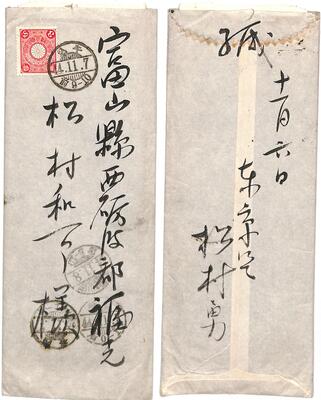 富山縣西礪波郡福光
松村和一郎様
4.11.7
后8-10
緘
十一月六日
東京ニて
松村勇